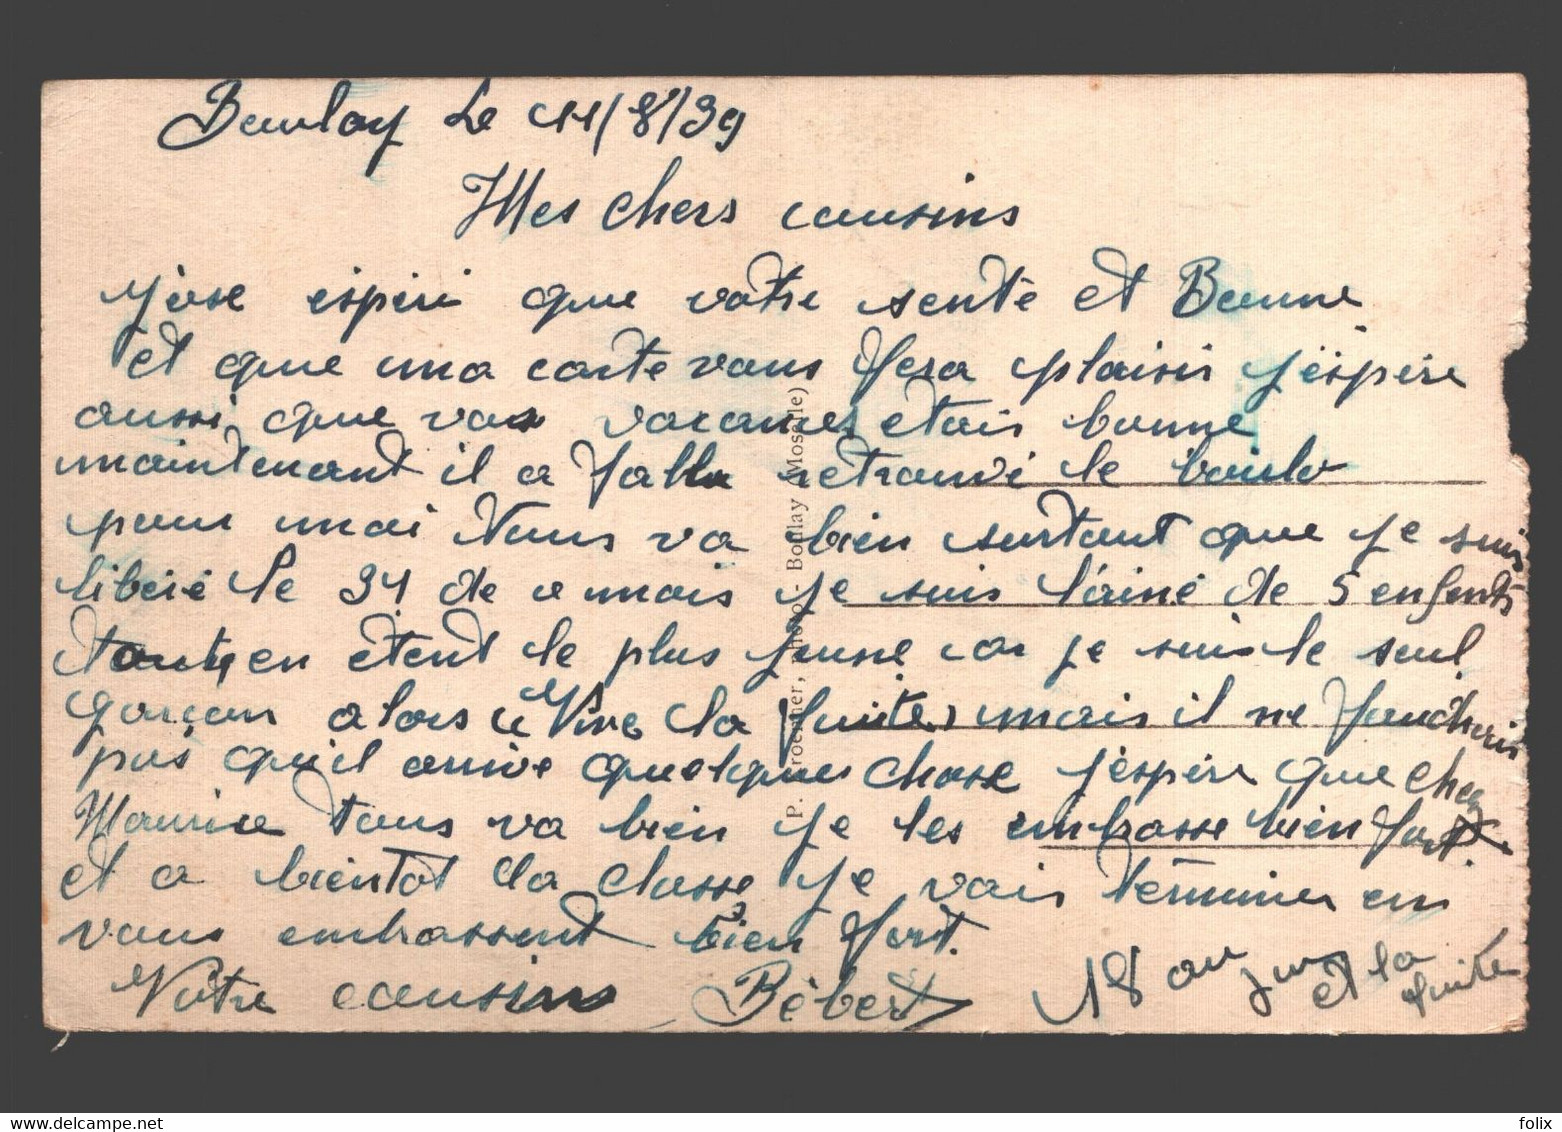 Boulay Le 11/8/39
Mes chers cousins
J'ose espéré que votre senté et Bonne
et que ma carte vous fera plaisir j'éspère
aussi que vos vacances etais bonne
maintenant il a fallu retrouvé le boulo
pour moi Nous va bien surtout que je suis
libéré le 31 de ce mois je suis l'ainé de 5 enfents
tout en étent le plus jeune car je suis le seul
garçon alors Vive la fuite mais il ne faudrais
pas qu'il arrive quelque chose j'espère que chez
Maurice tous va bien je les embrasse bien fort.
et a bientôt la classe je vais términer en
vous embrassent bien fort.
Votre cousin Bébert 18 au jus
et la
fuite
P. , Photo., Boulay (Moselle)
folix